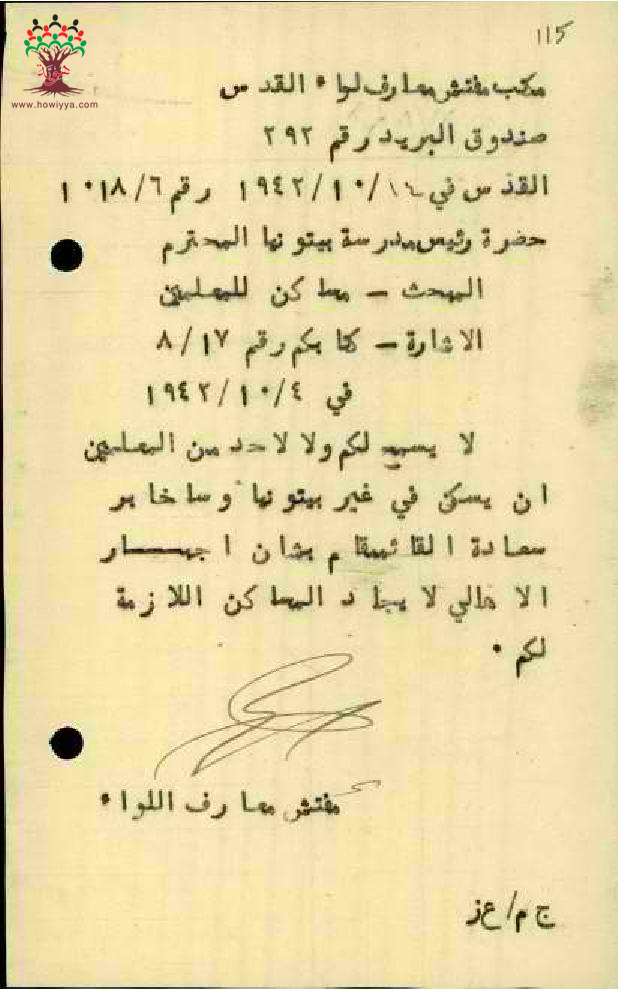 115
www.howiyya.com
مكتب مفتش معارف لواء القدس
صندوق البريد رقم ٢٩٢
القدس في ١٤/١٠/١٩٤٢ رقم ١٠١٨/٦
حضرة رئيس مدرسة بيتونيا المحترم
البحث - مساكن للمعلمين
الاشارة - كتابكم رقم ٨/١٧
في ١٩٤٢/١٠/٤
لا يسمح لكم ولا لاحد من المعلمين
ان يسكن في غير بيتونيا وساخابر
سعادة القائمقام بشان اجبار
الاهالي لايجاد المساكن اللازمة
لكم ٠
مفتش معارف اللواء
ج م/ع ز